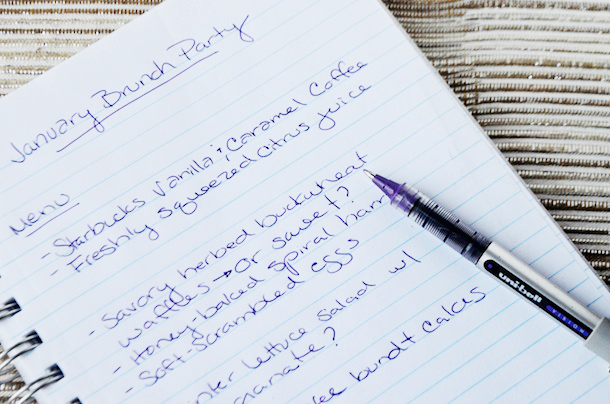 January Brunch Party
Menu
- Starbucks Vanilla & Caramel Coffee
- Freshly squeezed citrus juice
- Savory herbed buckwheat
waffles → Or sweet?
- Honey-baked spiral ham
- Soft-scrambled eggs
lettuce salad w/
bundt cakes
uni-ball
VISION